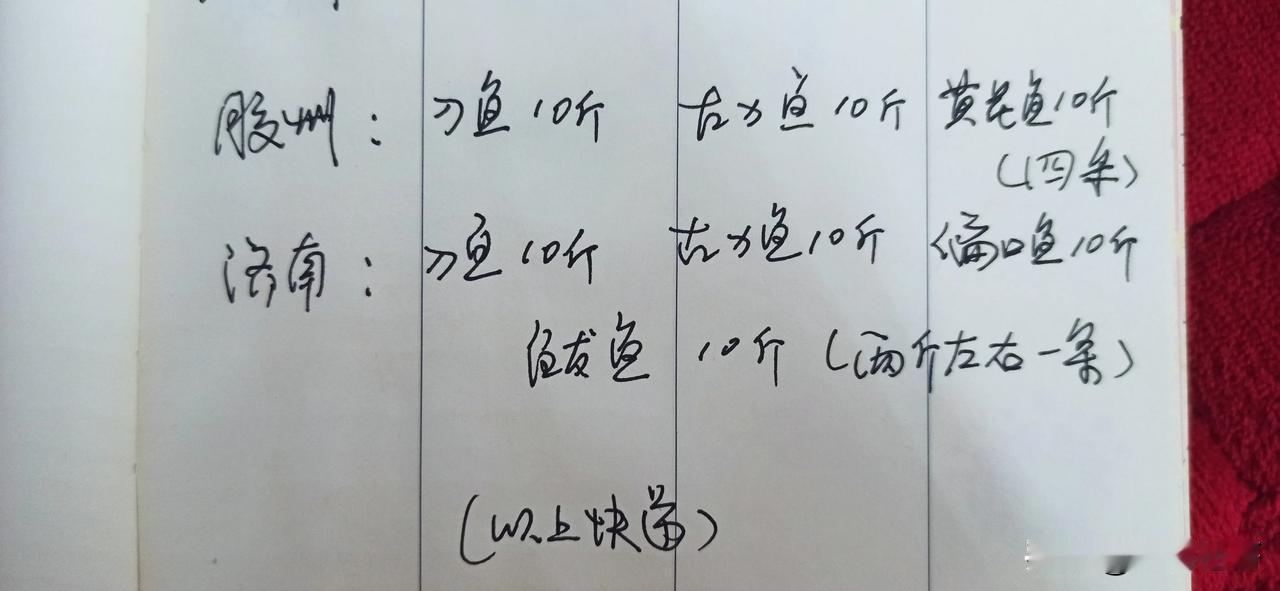 胶州：刀鱼10斤 古力鱼10斤 黄花鱼10斤
（四条）
济南：刀鱼10斤 古力鱼10斤 偏口鱼10斤
鲅鱼 10斤（两斤左右一条）
（以上快递）